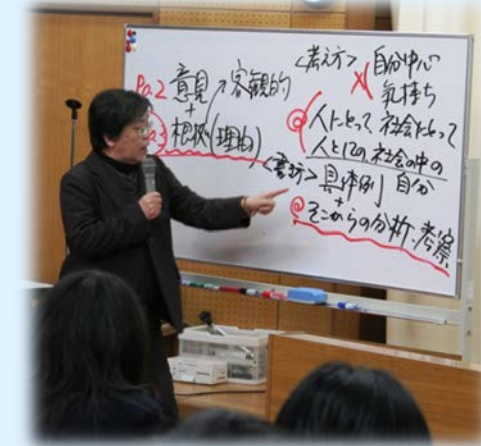 Pa.2 意見 客観的
+
Pa.3 根拠(理由)
<考え方> 自分中心
気持ち
@人にとって、社会にとって
人としての、社会の中の
自分
<書き方> 具体例
+
@そこからの分析・考察